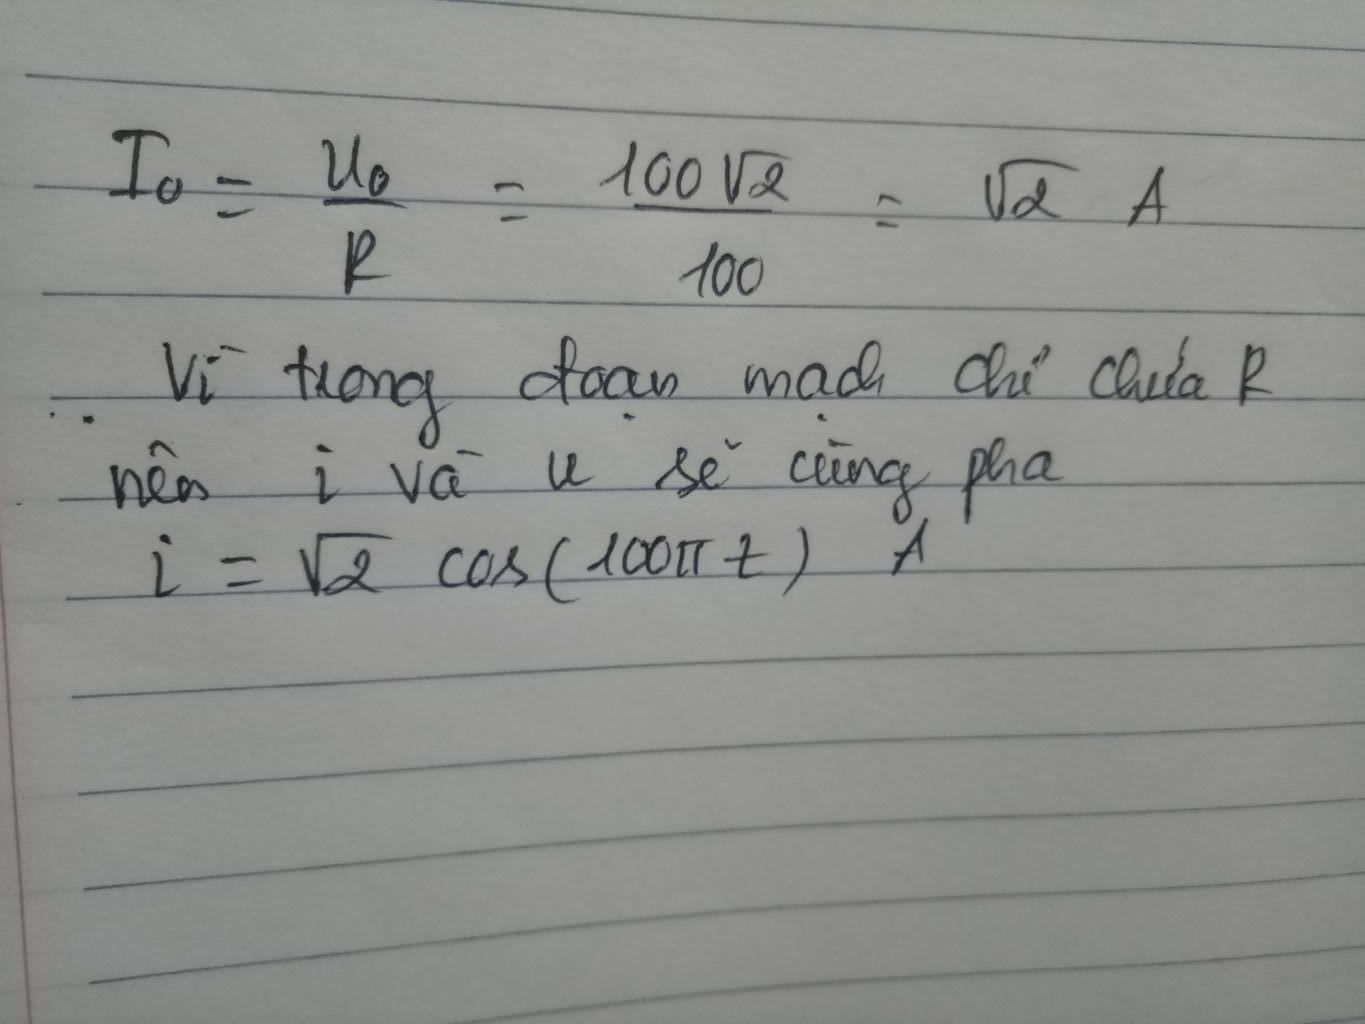 I₀ = U₀/R = 100√2/100 = √2 A
Vì trong đoạn mạch chỉ chứa R
nên i và u sẽ cùng pha
i = √2 cos(100πt) A